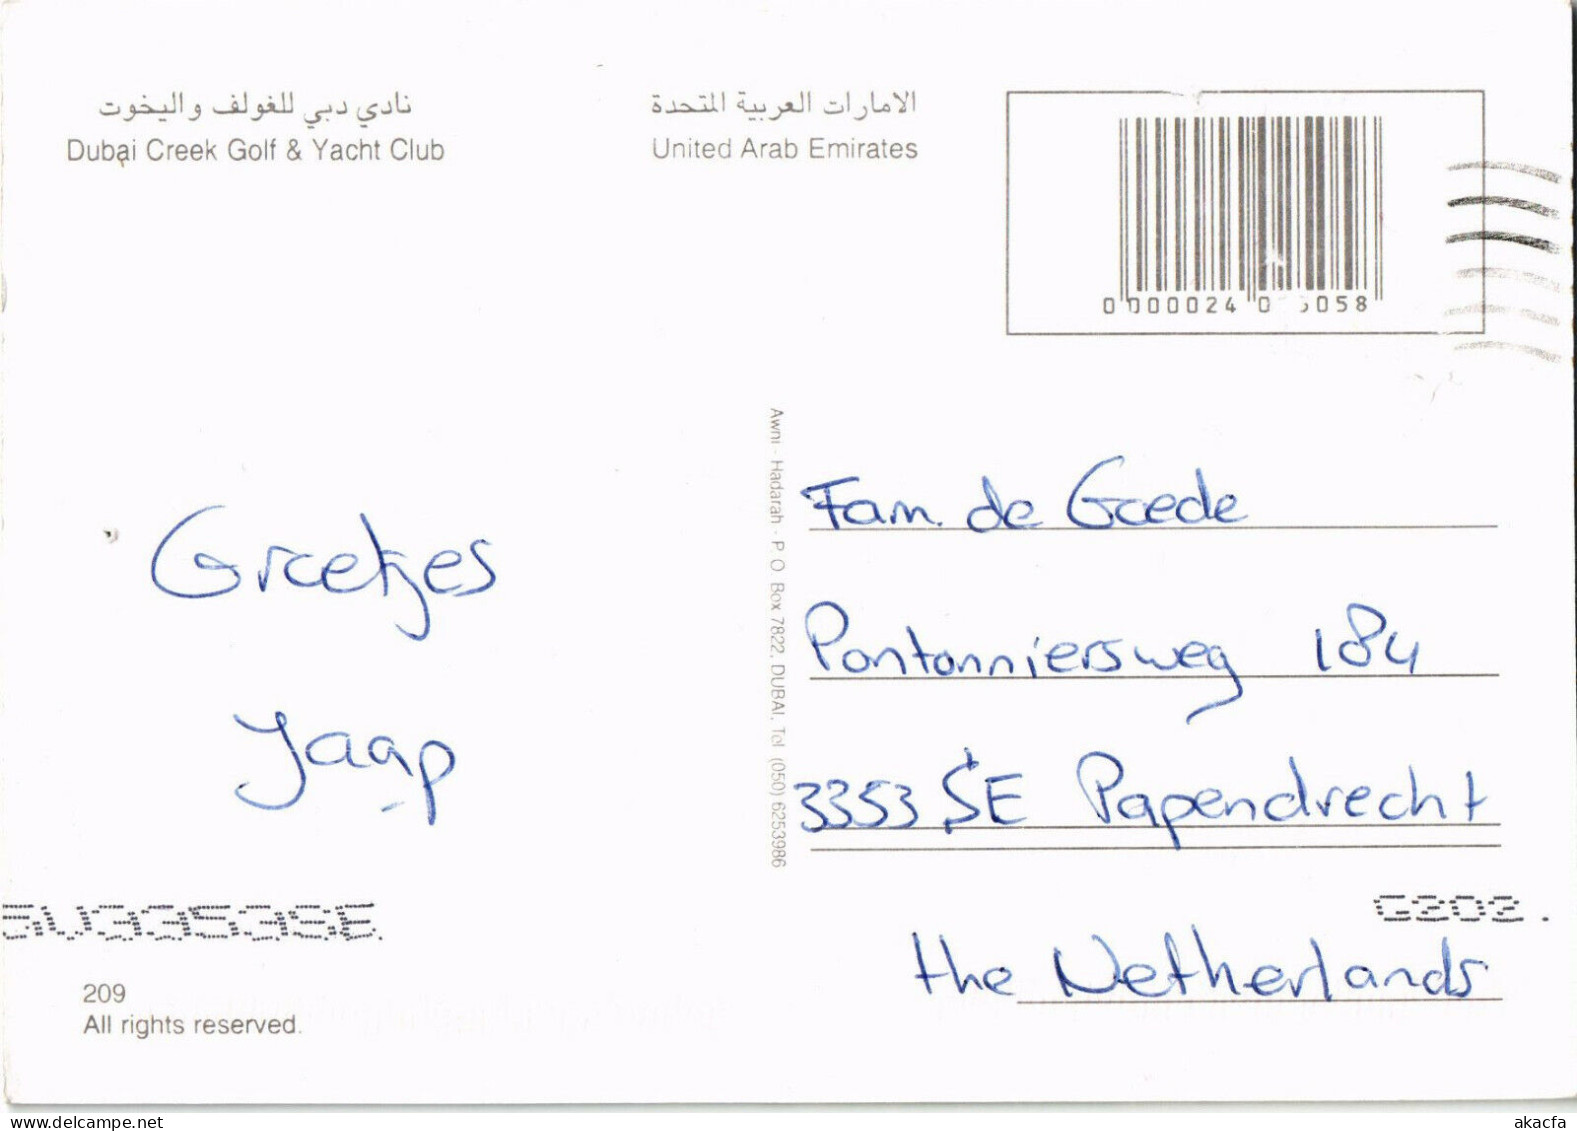 نادي دبي للغولف واليخوت
Dubai Creek Golf & Yacht Club
الامارات العربية المتحدة
United Arab Emirates
0 000024 0 5058
Awni - Hadarah - P.O. Box 7822, DUBAI, Tel (050) 6253986
Groetjes
Jaap
Fam. de Goede
Pontonniersweg 184
3353 SE Papendrecht
the Netherlands
5U3353SE
G202.
209
All rights reserved.
akacfa